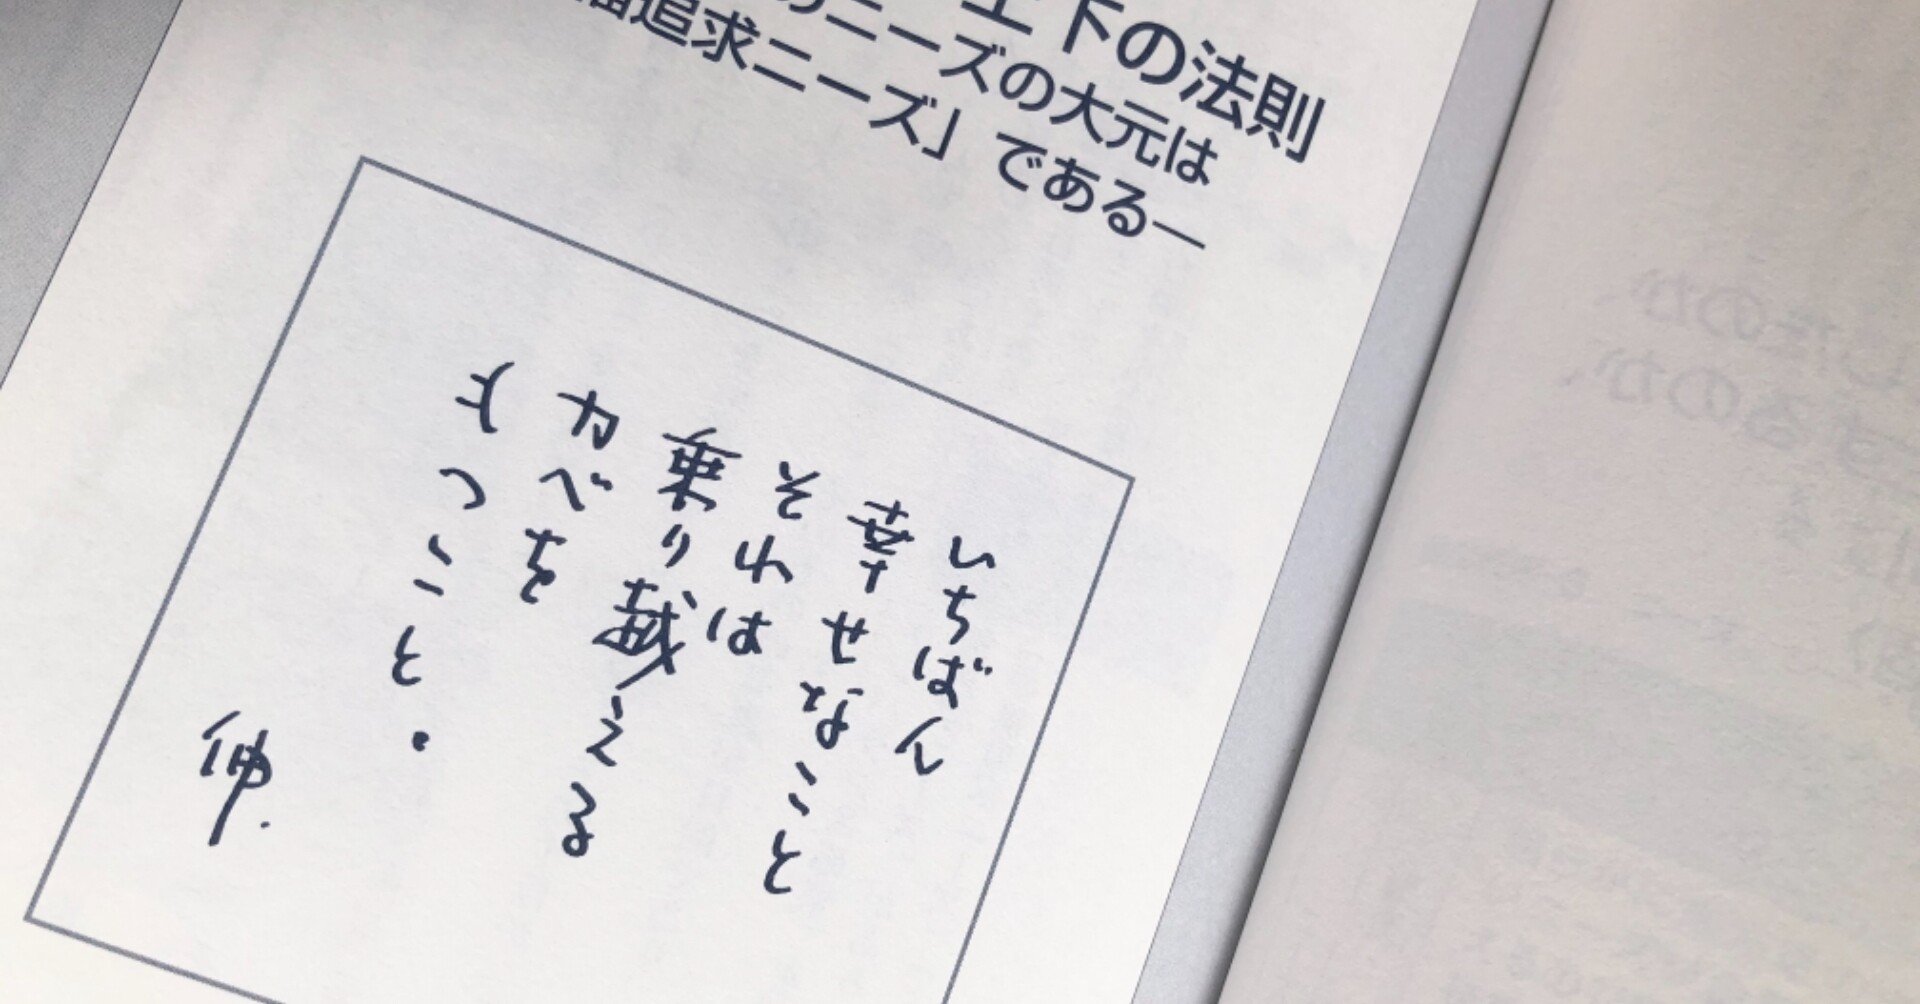 上下の法則
のニーズの大元は
福追求ニーズ」である―
いちばん
幸せなこと
それは
乗り越える
カベを
もつこと・
伸.